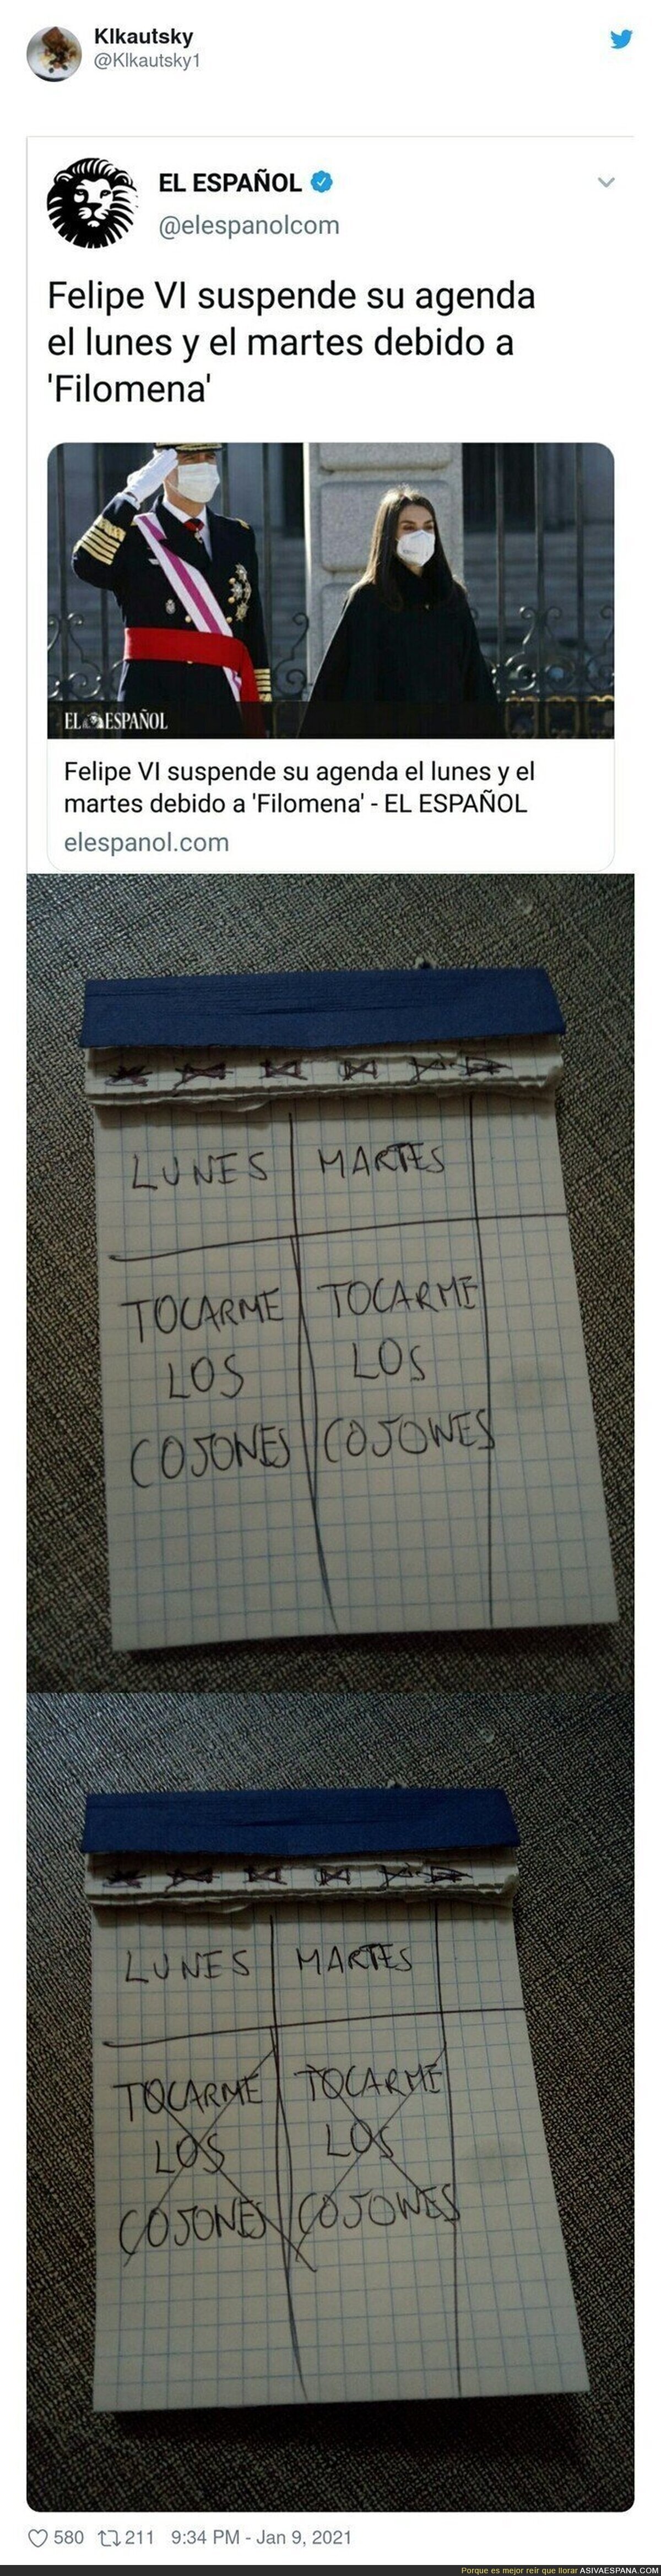 Klkautsky
@Klkautsky1
EL ESPAÑOL
@elespanolcom
Felipe VI suspende su agenda
el lunes y el martes debido a
'Filomena'
EL ESPAÑOL
Felipe VI suspende su agenda el lunes y el
martes debido a 'Filomena' - EL ESPAÑOL
elespanol.com
LUNES MARTES
TOCARME TOCARME
LOS LOS
COJONES COJONES
LUNES MARTES
TOCARME TOCARME
LOS LOS
COJONES COJONES
580 211 9:34 PM - Jan 9, 2021
Porque es mejor reír que llorar ASIVAESPANA.COM